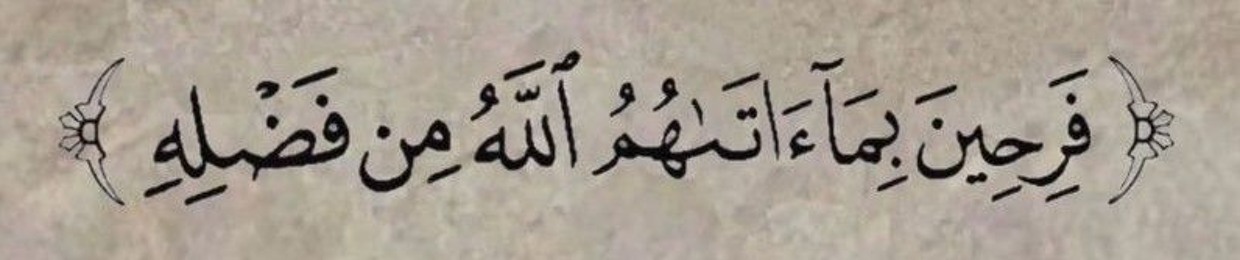 ﴿فَرِحِينَ بِمَآ ءَاتَىٰهُمُ ٱللَّهُ مِن فَضْلِهِ﴾